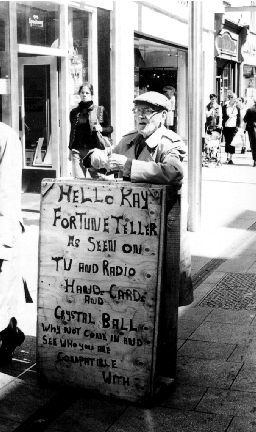 HELLO KAY
FORTUNE TELLER
AS SEEN ON
TV AND RADIO
HAND CARDS
AND
CRYSTAL BALL
WHY NOT COME IN AND
SEE WHO YOU ARE
COMPATIBLE
WITH